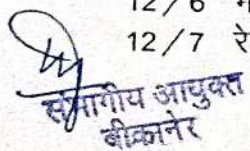 12/6
12/7 रे
संभागीय आयुक्त
बीकानेर